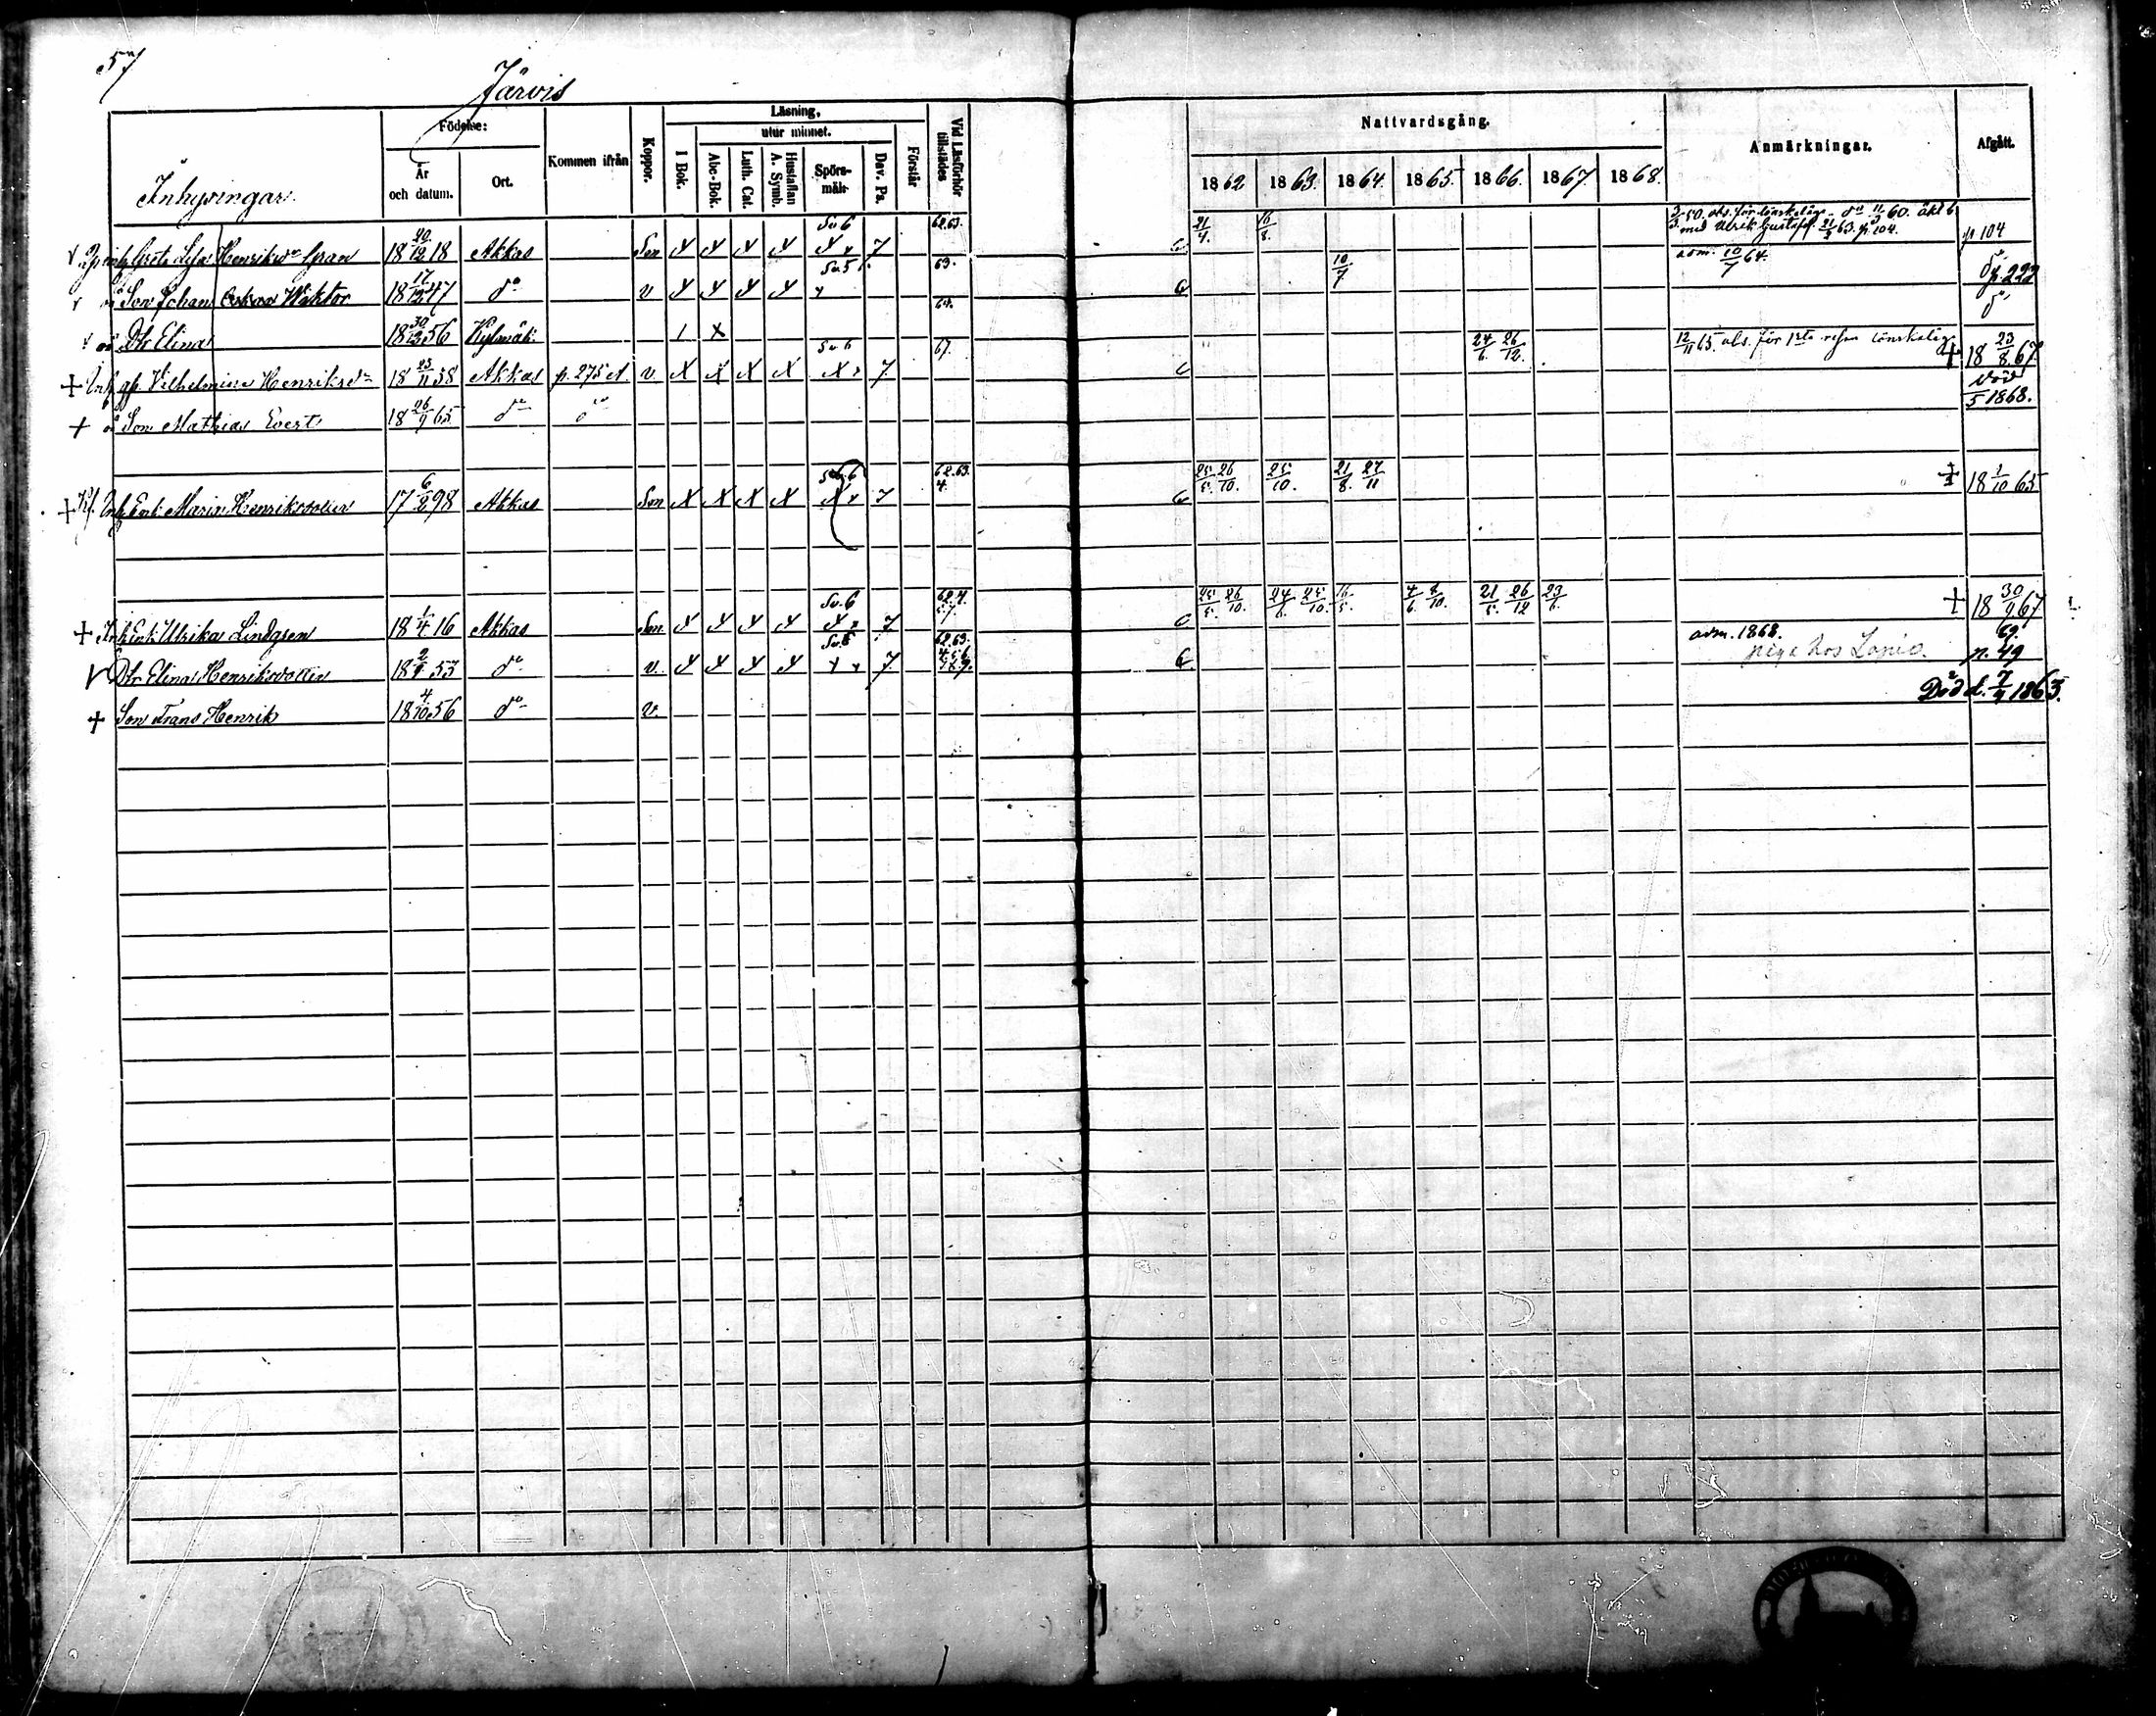 57
Järvis
Inhysingar.
Födelse:
År och datum.
Ort.
Kommen ifrån
Koppor.
Läsning,
I Bok.
utur minnet.
Abc-Bok.
Luth. Cat.
Hustaflan A. Symb.
Spörsmål:
Dav. Ps.
Förstår
Vid Läsförhör tillstädes
Nattvardsgång.
1862 1863. 1864. 1865. 1866. 1867. 1868.
Anmärkningar.
Afgått.
Greta Lisa Henriksdr Gran 18 20/12 18 Akkas Son X X X X Sv. 6 X x 7 62.63. 21/4. 16/8. 3/3 50. abs. för lönskeläge do 11/3 60. äkt b. med Ulrik Gustafss. 21/2 63. p. 104. p 104
Son Johan Oskar Wiktor 18 17/12 47 do v X X X X Sv. 5 x 63. 10/7 adm. 10/7 64. do p. 222
Dtr Elina 18 30/12 56 Kylmäk: 1 X 64. do
+ Inh. Vilhelmina Henriksdr 18 25/11 38 Akkas p. 275 v. X X X X Sv. 6 X x 7 67. 24/6. 26/12. 12/11 65. abs. för 1sta resan lönskeläge + 18 23/8 67
+ Son Mathias Evert 18 26/9 65 do do död /5 1868.
+ Inh Enk. Maria Henriksdotter 17 6/2 98 Akkas Son X X X X Sv. 6 X x 7 62.63. 4. 25/5. 26/10. 25/10. 21/8. 27/11 + 18 1/10 65
+ Inh Enk. Ulrika Lindgren 18 1/4 16 Akkas Son X X X X Sv. 6 X x 7 62.4. 5.7. 25/5. 26/10. 24/6. 25/10. 16/5. 4/6. 8/10. 21/5. 26/12 23/6. + 18 30/9 67
Dtr Elina Henriksdotter 18 2/1 53 do v. X X X X Sv. 5 x x 7 62.63. adm. 1868. piga hos 69. p. 49
+ Son Frans Henrik 18 4/10 56 do v. Död d. 7/4 1863.